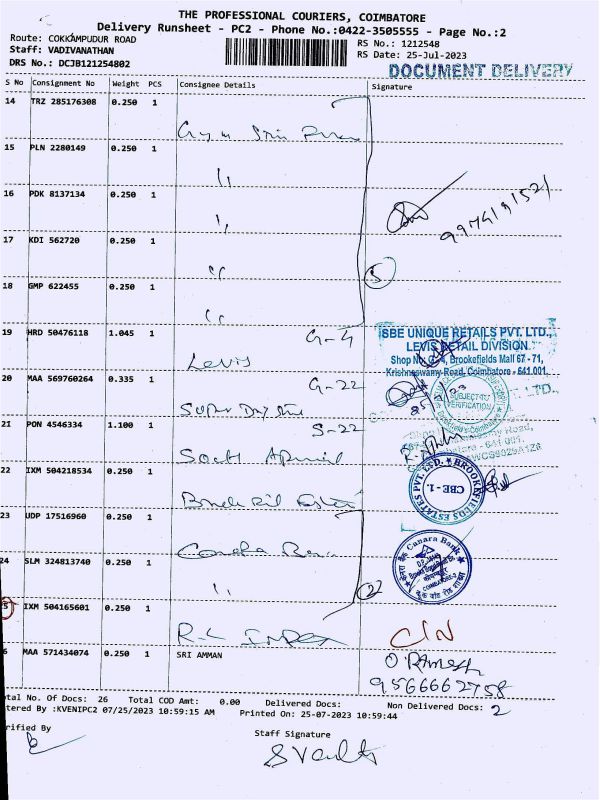 THE PROFESSIONAL COURIERS, COIMBATORE
Delivery Runsheet - PC2 - Phone No.:0422-3505555 - Page No.:2
Route: COKKAMPUDUR ROAD
Staff: VADIVANATHAN
DRS No.: DCJB121254802
RS No.: 1212548
RS Date: 25-Jul-2023
DOCUMENT DELIVERY
S No Consignment No Weight PCS Consignee Details Signature
14 TRZ 285176308 0.250 1
15 PLN 2280149 0.250 1 "
16 PDK 8137134 0.250 1 "
9974191521
17 KDI 562720 0.250 1 "
5
18 GMP 622455 0.250 1 "
19 HRD 50476118 1.045 1 G-4
Levis
SBE UNIQUE RETAILS PVT. LTD.,
LEVIS RETAIL DIVISION
Shop No: G-4, Brookefields Mall 67 - 71,
Krishnaswamy Road, Coimbatore - 641 001.
20 MAA 569760264 0.335 1 G-22
Super Dry
SUBJECT TO
VERIFICATION
21 PON 4546334 1.100 1 S-22
South
22 IXM 504218534 0.250 1
BROOKEFIELDS ESTATES PVT. LTD.
CBE - 1.
23 UDP 17516960 0.250 1
Canara Bank
24 SLM 324813740 0.250 1 "
2
Canara Bank
COIMBATORE
25 IXM 504165601 0.250 1
R-L Impex
C/N
6 MAA 571434074 0.250 1 SRI AMMAN
O. Ramesh
9566662758
tal No. Of Docs: 26 Total COD Amt: 0.00 Delivered Docs: Non Delivered Docs: 2
tered By :KVENIPC2 07/25/2023 10:59:15 AM Printed On: 25-07-2023 10:59:44
rified By
Staff Signature